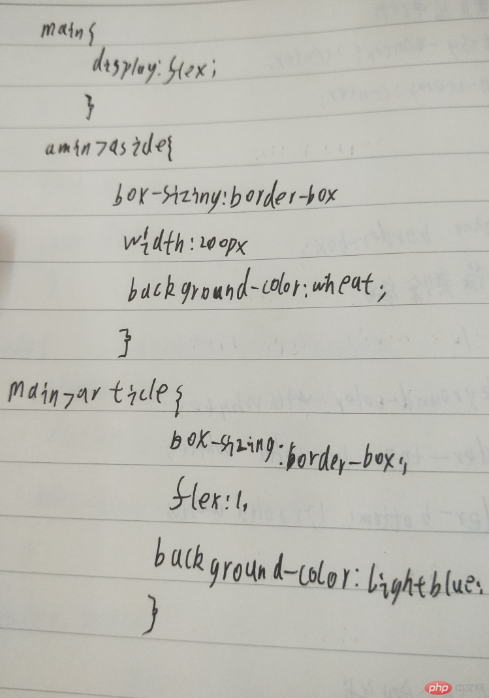 main{
display:flex;
}
amin>aside{
box-sizing:border-box
width:200px
background-color:wheat;
}
main>article{
box-sizing:border-box;
flex:1,
background-color:lightblue;
}
php